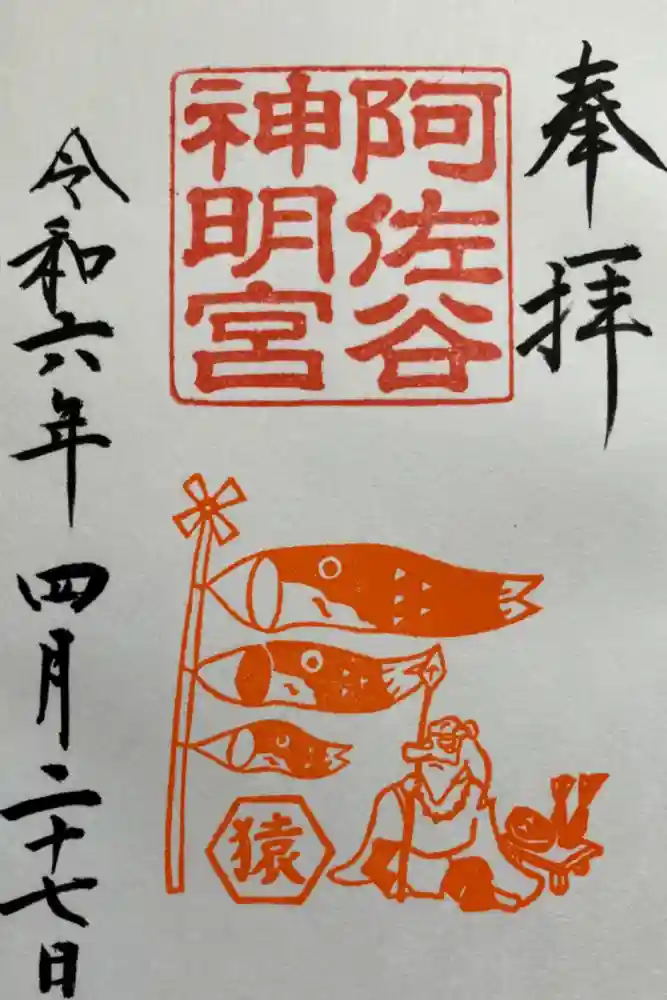 奉拝
阿佐谷
神明宮
猿
令和六年四月二十七日